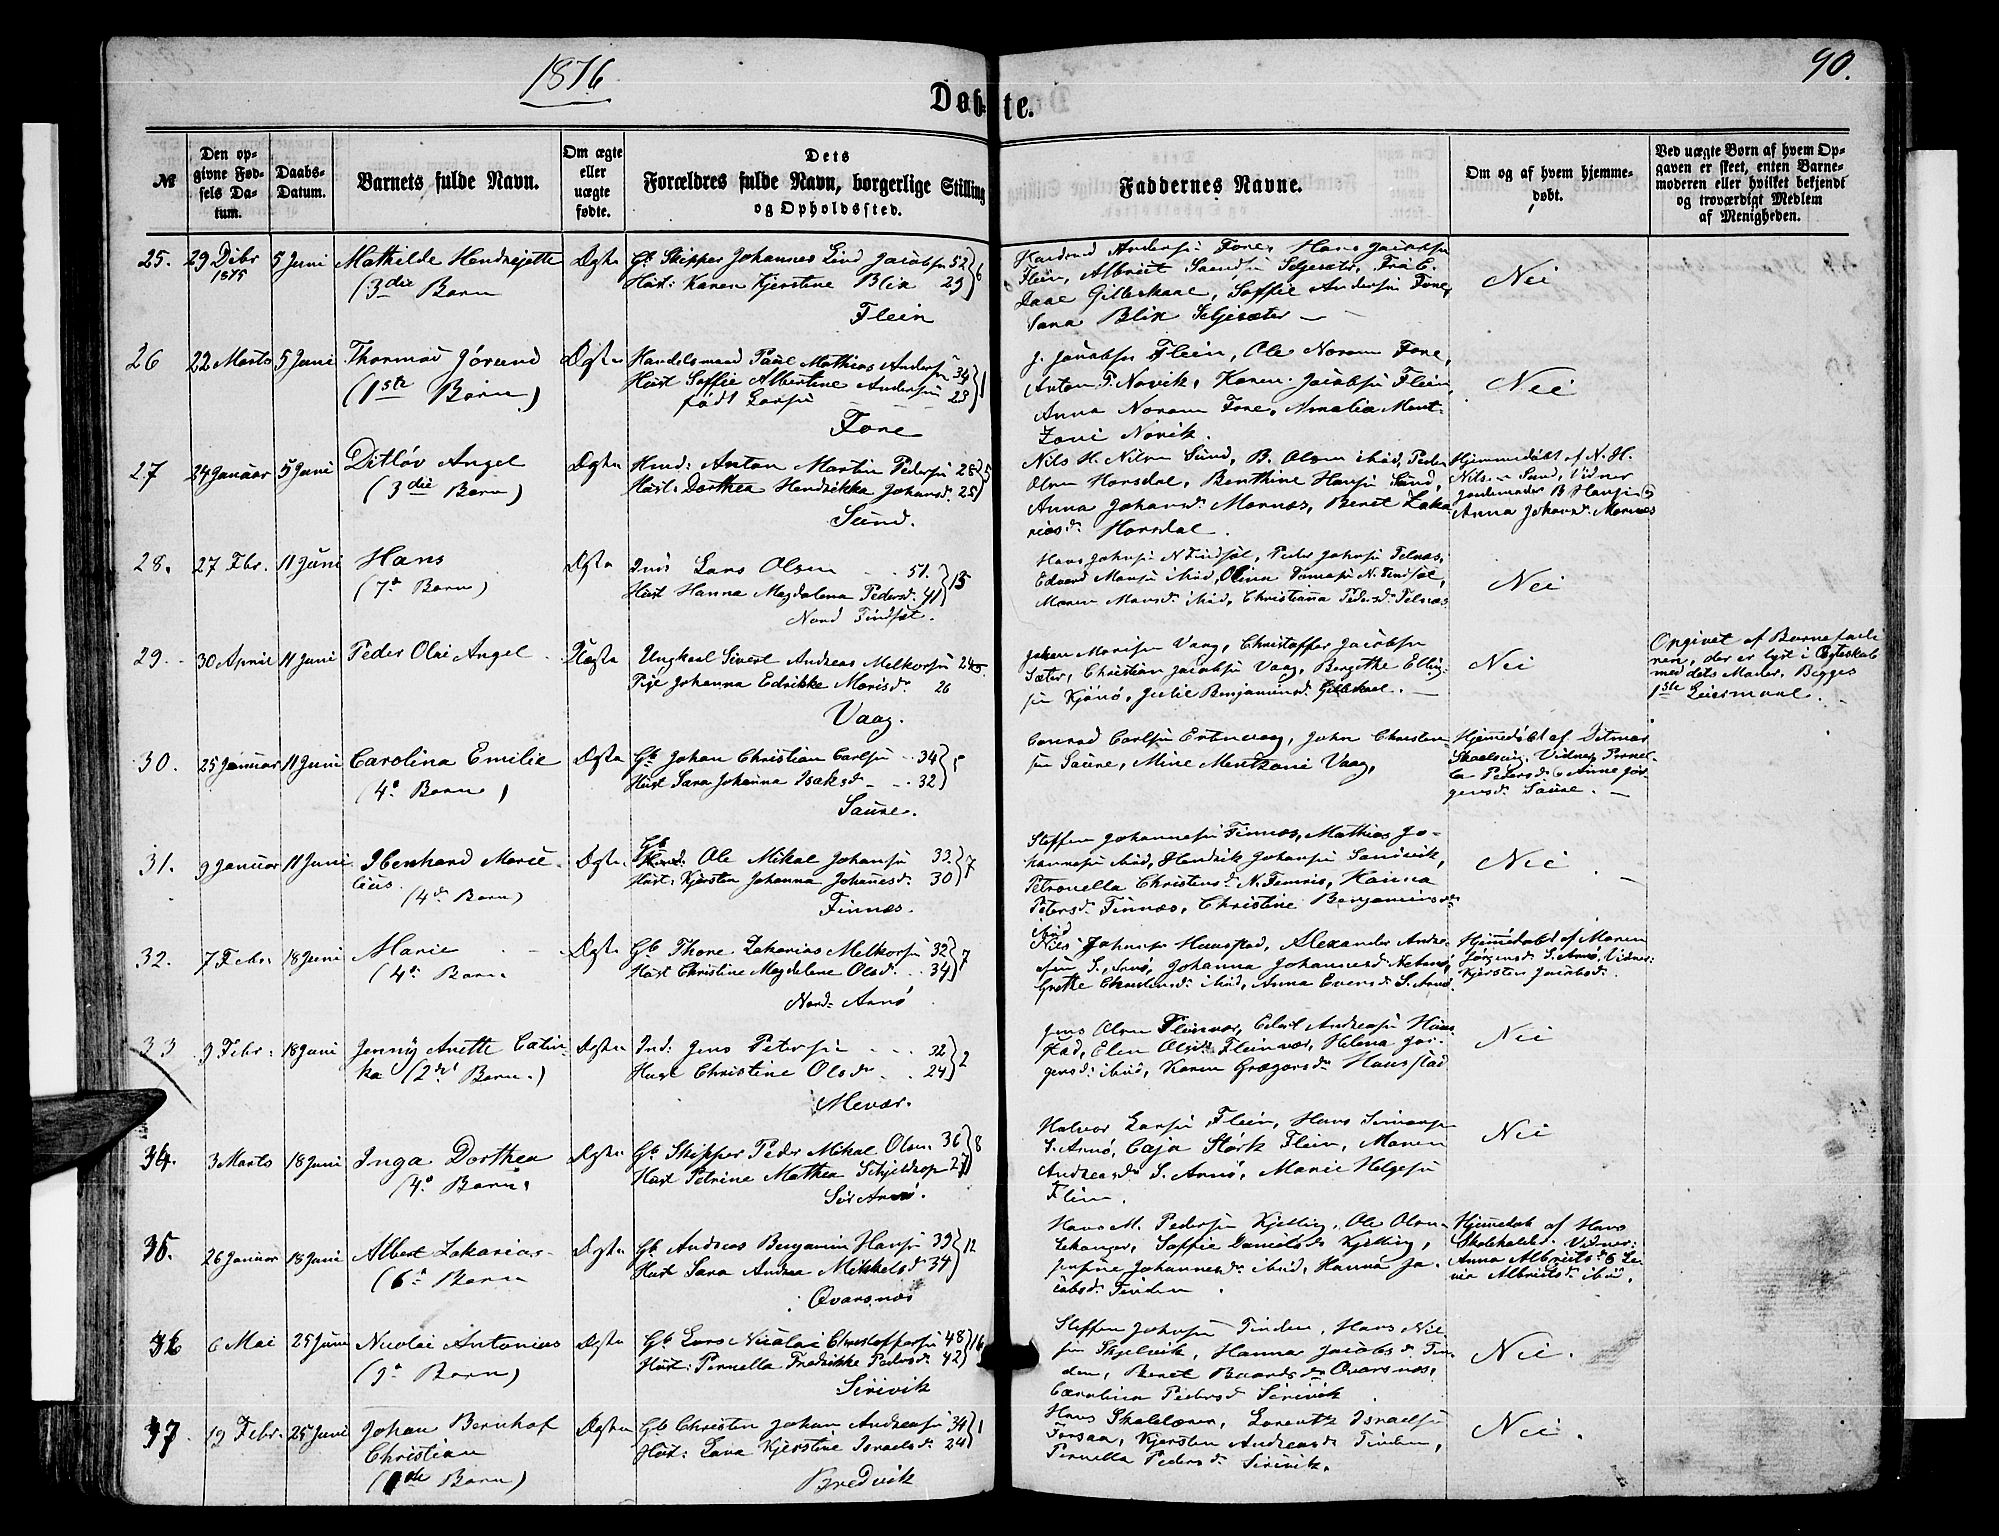 1876
90.
Døbte.
№
Den op-
givne Fød-
sels Da-
tum.
Daabs-
Datum.
Barnets fulde Navn.
Om ægte
eller
uægte
fødte.
Dets
Forældres fulde Navn, borgerlige Stilling
og Opholdssted.
Faddernes Navne.
Om og af hvem hjemme-
døbt.
Ved uægte Børn af hvem Op-
gaven er skeet, enten Barne-
moderen eller hvilket bekjendt
og troværdigt Medlem
af Menigheden.
25. 29 Dcbr 1875 5 Juni Mathilde Hendrejette
(3die Barn
Ægta Gb. Skipper Johannes Lind Jacobsen 52
Hust: Karen Kjerstine Blix 29 } 6
Flein
Andersen Fore, Hans Jacobsen
Flein, Albrect
Gilleskaal, Soffie Andersen Fore,
Blix
Nei
26 22 Marts 5 Juni Thormod Jørund
(1ste Barn)
Ægta Handelsmand Paul Mathias Andersen 34
Hust Soffie Albertine Andersen 23 } 1
født Larsen
Fore
J. Jacobsen Flein, Ole Noram Fore,
Anton P. Novik, Karen Jacobsen Flein
Anna Noram Fore, Amalia Ment-
zoni Novik.
Nei
27 24 Januar 5 Juni Ditløv Angel
(3die Barn)
Ægta Hmd: Anton Martin Pedersen 28
Hust: Dorthea Hendrikka Johansd. 25 } 5
Sund.
Nils H. Nilsen Sund, B. Olsen ibid, Peder
Olsen Horsdal, Benthine Hansen Sund,
Anna Johansd. Mornes, Beret Zaka-
riasd. Horsdal.
Hjemmedøbt af N. H.
Nils. Sund, Vidner
Jordemoder B Hansen
Anna Johansd. Mornes
28. 27 Fbr. 11 Juni Hans
(7e Barn)
Ægta Lars Olsen 51.
Hust Hanna Magdalena Pedersd. 41 } 15
Nord Findset.
Hans Johnsen N Findset, Peder Johnsen Telnæs,
Edvard Mansen ibid, Olina N. Findset,
Maren Monsd. ibid, Christianna Pedersd. Telnæs
Nei
29. 30 April 11 Juni Peder Olai Angel
Uægta Ungkarl Sivert Andreas Melkorsen 24
Pige Johanna Edrikke Morisd. 26
Vaag.
Johan Morisen Vaag, Christoffer Jacobsen
Sæter, Christian Jacobsen Vaag, Bergithe Elling-
sen Kjønø, Julie Benjaminsd. Gilleskaal.
Nei
Opgivet af Barnefade
ren, der er lyst i Ægteskab
med dets Moder. Begges
1ste Leiermaal.
30. 25 Januar 11 Juni Carolina Emilie
(4e Barn)
Ægta Gb. Johan Christian Carlsen 34
Hust Sara Johanna Isaksd. 32 } 5
Saure.
Conrad Carlsen Ertenvaag, John Christen-
sen Saure, Mine Mentzoni Vaag,
Hjemedøbt af Ditmar
Skaalsvig, Vidner Pernel-
la Pedersd. & Anne Jør-
gensd. Saure.
31. 9 Januar 11 Juni Ibenhard Mari-
lius.
(4de Barn)
Ægta. Gb Ole Mikal Johansen 33.
Hust: Kjersten Johanna Johansd. 30 } 7
Finnæs.
Steffen Johannesen Finnæs, Mathias Jo-
hannesen ibid, Hendrik Johansen Sandvik,
Petronella Christensd. N. Femris, Hanna
Petersd. Finnæs, Christine Benjaminsd.
ibid
Nei
32. 7 Febr. 18 Juni Marie
(4e Barn
Ægta Gb. Thore Zakarias Melkorsen 32
Hust Christine Magdelene Olsd. 34 } 7
Nord. Arnø
Nils Johnsen Haustad, Alexander Andre-
sen S. Arnø, Johanna Johannesd.
Grethe Christensd. ibid, Anna Evensd. S. Arnø
Hjemedøbt af Maren
Jørgensd. S. Arnø, Vidner
Kjersten Jacobsd.
33 9 Febr. 18 Juni Jenny Anette Catin-
ka (2det Barn.)
Ægta Ind: Jens Petersen 32
Huse Christine Olsd. 24 } 2
Mevær.
Jens Olsen Fleinvær, Edvart Andreasen Hau-
stad, Elen Olsd. Fleinvær, Helena Jør-
gensd. ibid, Karen Grægersd. Haustad
Nei
34. 3 Marts 18 Juni Inga Dorthea
(4e Barn.
Ægta Gb. Skipper Peder Mikal Olsen 36
Hust Petrine Mathea Schjeldrop 27 } 8
Sør Arnø.
Halvor Larsen Flein, Hans Simonsen
S. Arnø, Caja Størk Flein, Maren
Andreasd. S. Arnø, Marie Helgesen
Flein.
Nei
35. 26 Januar 18 Juni Albert Zakarias
(6e Barn
Ægta Gb. Andreas Benjamin Hansen 39
Hust Sara Andrea Mikkelsd. 34 } 12
Qvarsnæs
Hans M. Pedersen Kjelling, Ole Olsen
Lekanger, Soffie Danielsd. Kjelling,
Johannesd. ibid, Hanna Ja-
cobsd. Tinden.
Hjemedøb af Hans
Skoleholder. Vidner:
Anna Albrictsd. &
Albrictsd. ibid.
36 6 Mai 25 Juni Nicolai Antonius
(9e Barn)
Ægta Gb. Lars Nicolai Christoffersen 48
Hust: Pernella Fredrikke Pedersd. 42 } 16
Sørvik
Steffen Johnsen Tinden, Hans Nil-
sen Skjelvik, Hanna Jacobsd. Tin-
den, Beret Baardsd. Qvarsnæs,
Carolina Pedersd. Sørvik
Nei.
37 19 Febr. 25 Juni Johan Bernhof
Christian
(1ste Barn)
Ægta Gb Christen Johan Andreasen 34
Hust: Lava Kjerstine Israelsd. 24 } 1
Bredvik
Hans Skolelærer, Lorents Israelsen
Forsaa, Kjersten Andreasd. Tinden,
Pernella Pedersd. Sørvik.
Nei.